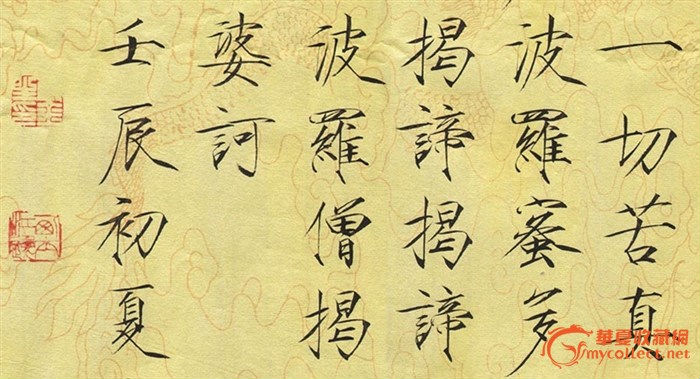 一切苦真
波羅蜜多
揭諦揭諦
波羅僧揭
娑訶
壬辰初夏
華夏收藏網
mycollect.net